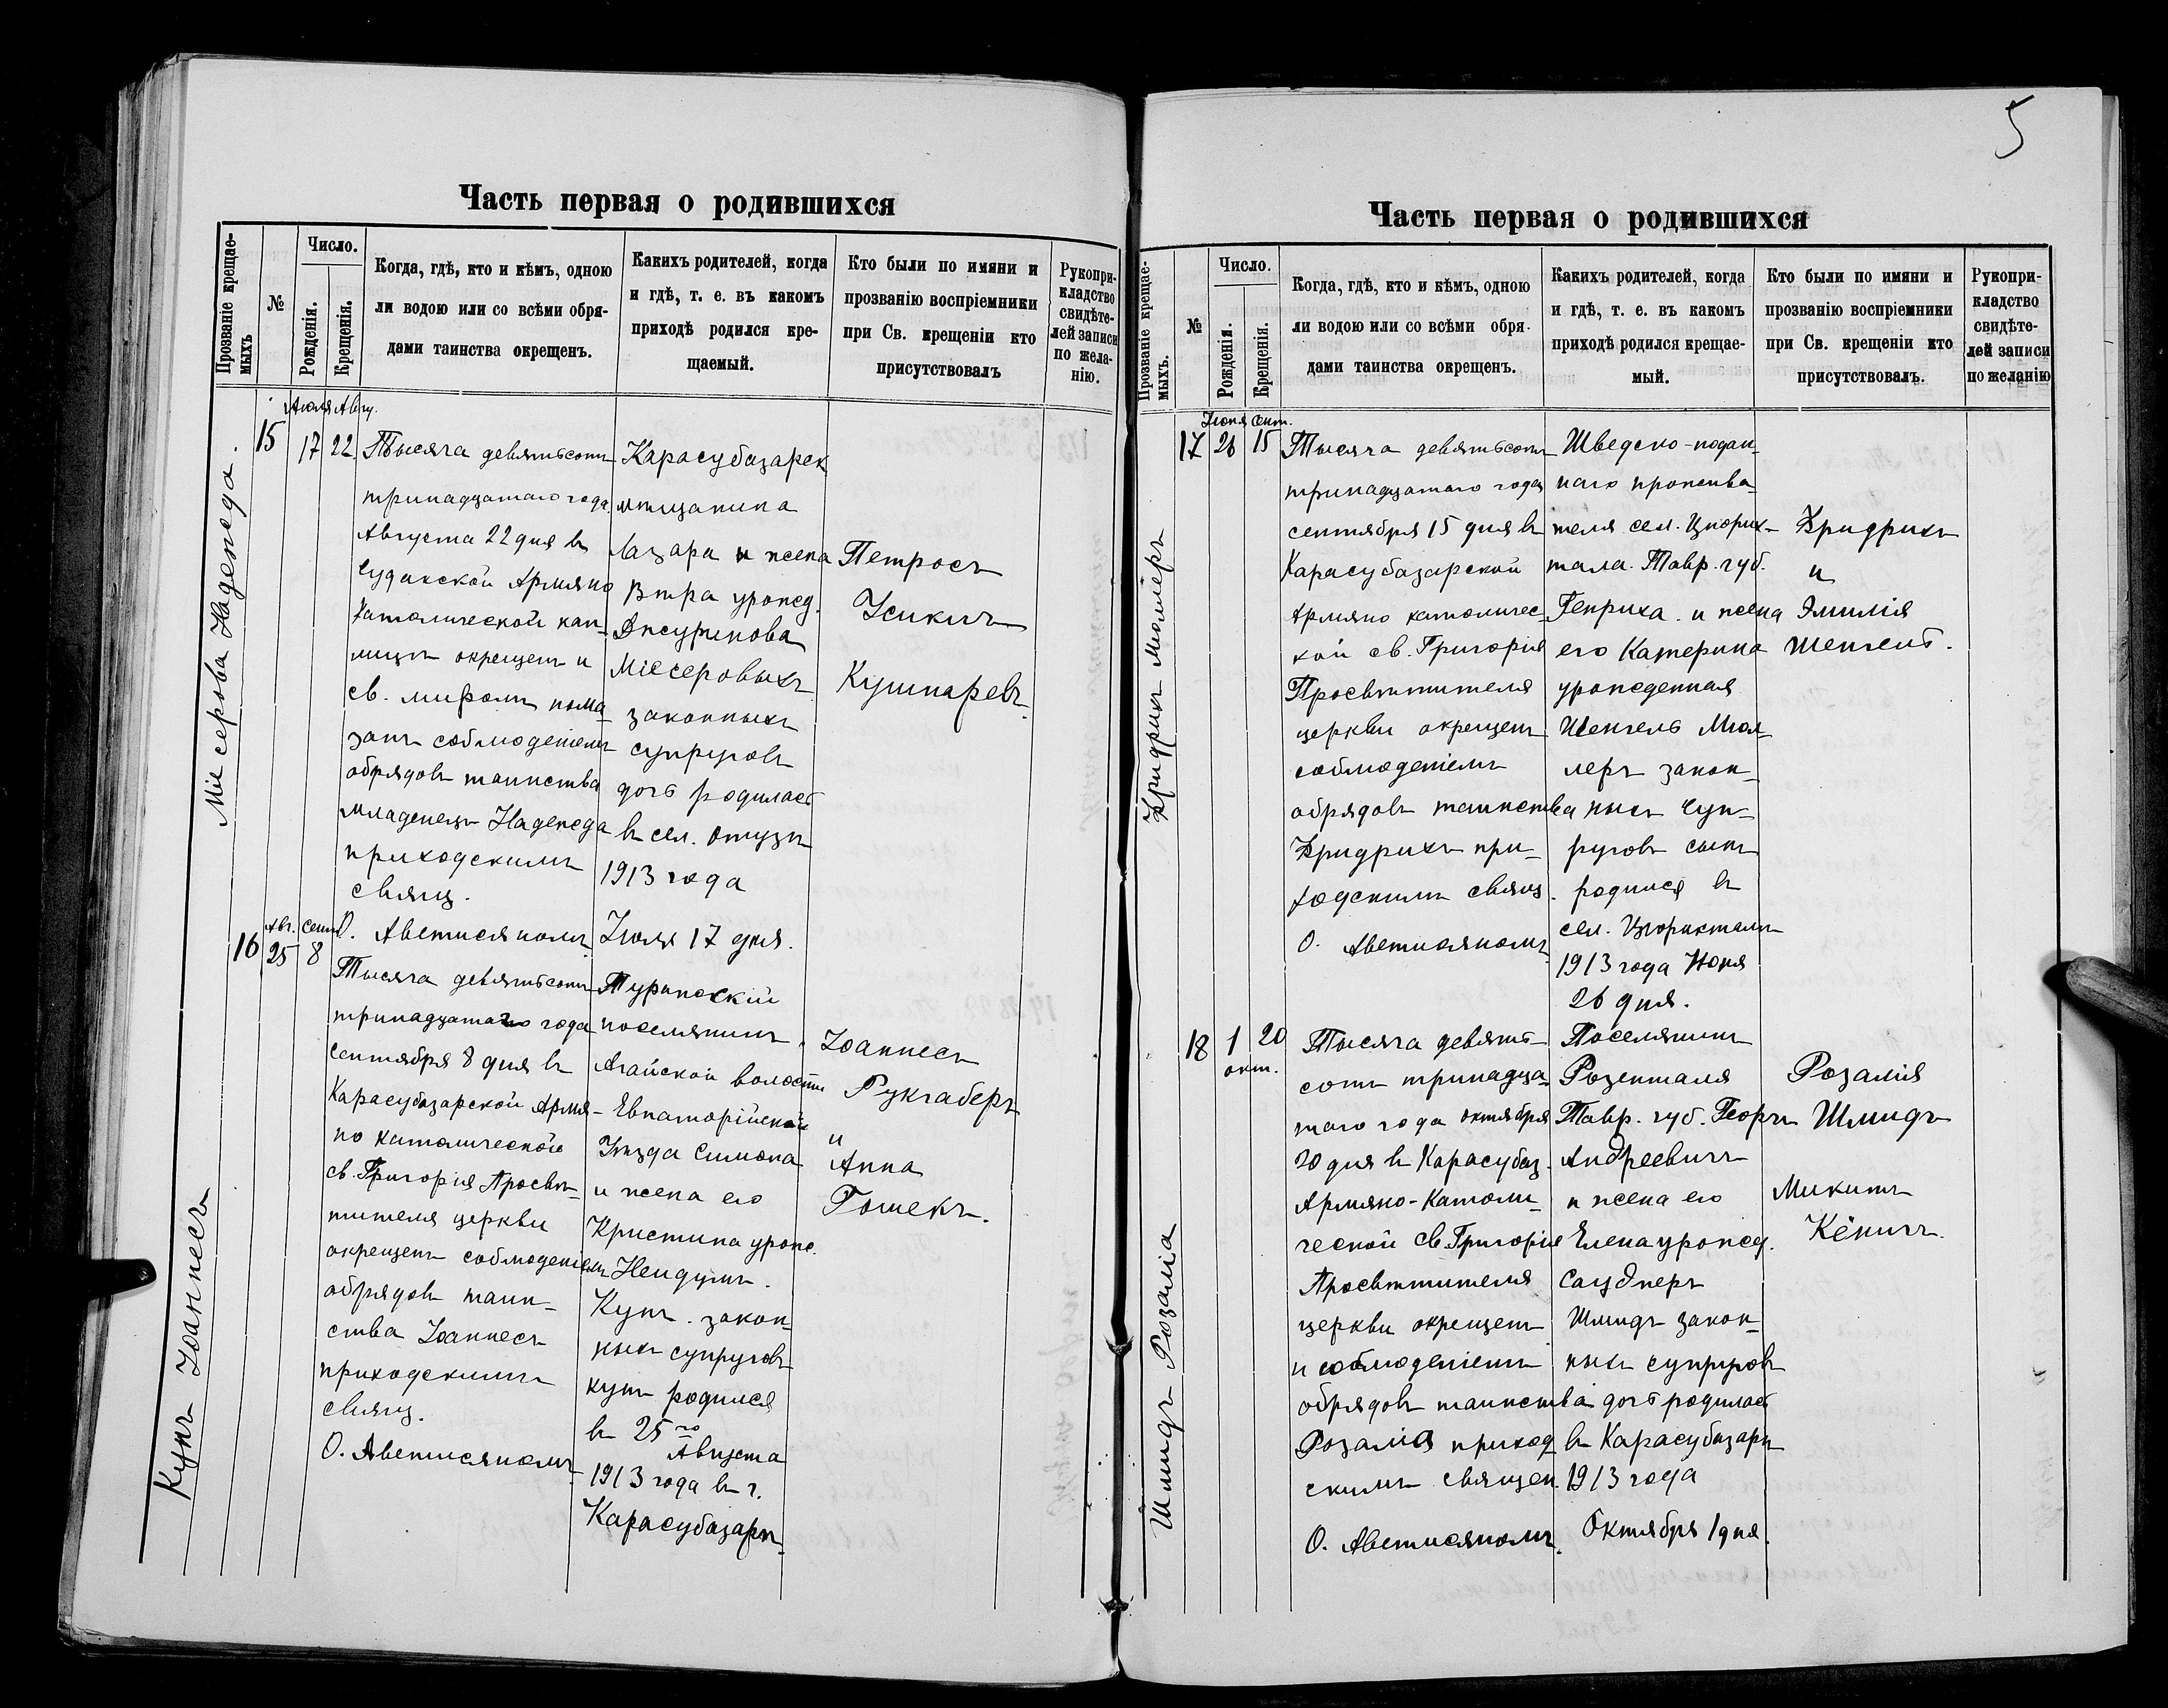 5
Часть первая о родившихся
Прозваніе крещае-
мыхъ
№
Число.
Рожденія.
Крещенія.
Когда, гдѣ, кто и кѣмъ, одною
ли водою или со всѣми обря-
дами таинства окрещенъ.
Какихъ родителей, когда
и гдѣ, т. е. въ какомъ
приходѣ родился кре-
щаемый.
Кто были по имяни и
прозванію воспріемники
при Св. крещеніи кто
присутствовалъ
Рукопри-
кладство
свидѣте-
лей записи
по жела-
нію.
Надежда
15
Іюля Авгу.
17 22
Тысяча девятьсотъ
тринадцатаго года
Августа 22 дня въ
Судакской Армяно
Католической кап-
лицѣ окрещенъ и
св. миромъ пома-
занъ соблюденіемъ
обрядовъ таинства
младенецъ Надежда
приходскимъ
свящ.
О. Аветисяномъ
Карасубазарск
мѣщанина
Лазаря и жена
урожед.
законныхъ
супруговъ
дочь родилась
въ сел. Отузы
1913 года
Іюля 17 дня.
Петросъ
Кушнаревъ.
Кунъ Іоаннесъ
16
Авг. Сент
25 8
Тысяча девятьсотъ
тринадцатаго года
Сентября 8 дня въ
Карасубазарской Армя-
но католической
св. Григорія Просвѣ-
тителя церкви
окрещенъ соблюденіемъ
обрядовъ таин-
ства Іоаннесъ
приходскимъ
свящ.
О. Аветисяномъ
поселянинъ
Агайской волости
Евпаторійской
Уѣзда Симона
и жена его
Кристина урож.
Кунъ. закон-
ныхъ супруговъ
кунъ родился
въ 25 го
Августа
1913 года въ г.
Карасубазарѣ.
Іоаннесъ
Рукгаберъ
и
Анна
Гошекъ.
Часть первая о родившихся
Прозваніе крещае-
мыхъ.
№
Число.
Рожденія.
Крещенія.
Когда, гдѣ, кто и кѣмъ, одною
ли водою или со всѣми обря-
дами таинства окрещенъ.
Какихъ родителей, когда
и гдѣ, т. е. въ какомъ
приходѣ родился крещае-
мый.
Кто были по имяни и
прозванію воспріемники
при Св. крещеніи кто
присутствовалъ.
Рукопри-
кладство
свидѣте-
лей записи
по желанію
Фридрихъ Мюллеръ
17
Іюня Сент.
26 15
Тысяча девятьсотъ
тринадцатаго года
сентября 15 дня въ
Карасубазарской
Армяно католичес-
кой св. Григорія
Просвѣтителя
церкви окрещенъ
соблюденіемъ
обрядовъ таинства
Фридрихъ при-
ходскимъ свящ.
О. Аветисяномъ
Шведско-подан-
наго прожива-
теля сел. Цюрих-
тала. Тавр. губ.
Генриха. и жена
его Катерина
урожеденная
Шенгель Мюл-
леръ закон-
ныхъ Суп-
руговъ сынъ
родился въ
сел. Цюрихталь
1913 года Июня
26 дня.
Фридрихъ
и
Эмилія
Шенгель.
Шмидъ Розалія
18
1 20
окт.
Тысяча девять-
сотъ тринадца-
таго года октября
20 дня въ Карасубаз.
Армяно-Католи-
ческой св. Григорія
Просвѣтителя
церкви окрещенъ
и соблюденіемъ
обрядовъ таинства
Розалія приход
скимъ священ.
О. Аветисяномъ.
Поселянинъ
Розенталя
Тавр. губ. Георгъ
Андреевичъ
и жена его
Елена урожед.
Шмидъ закон-
ныхъ супруговъ
дочь родилась
въ Карасубазарѣ
1913 года
Октября 1 дня.
Розалія
Шмидъ
Микитъ
Кёнигъ.